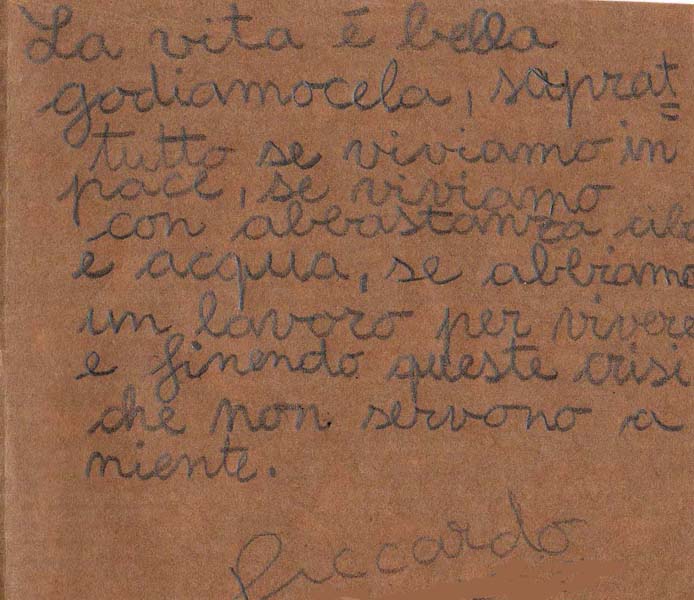 La vita è bella
godiamocela, soprat=
tutto se viviamo in
pace, se viviamo
con abbastanza cibo
e acqua, se abbiamo
un lavoro per vivere
e finendo queste crisi
che non servono a
niente.
Riccardo